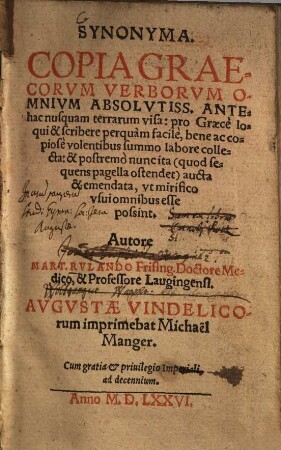 SYNONYMA.
COPIA GRAE-
CORVM VERBORVM O-
MNIVM ABSOLVTISS. ANTE-
hac nusquam terrarum visa: pro Græcè lo-
qui & scribere perquàm facilè, bene ac co-
piosè volentibus summo labore colle-
cta: & postremò nunc ita (quod se-
quens pagella ostendet) aucta
& emendata, vt mirifico
vsui omnibus esse
possint.
Autore
MART. RVLANDO Frising. Doctore Me-
dico, & Professore Laugingensi.
AVGVSTÆ VINDELICO-
rum imprimebat Michaël
Manger.
Cum gratia & priuilegio Imperiali,
ad decennium.
Anno M. D. LXXVI.